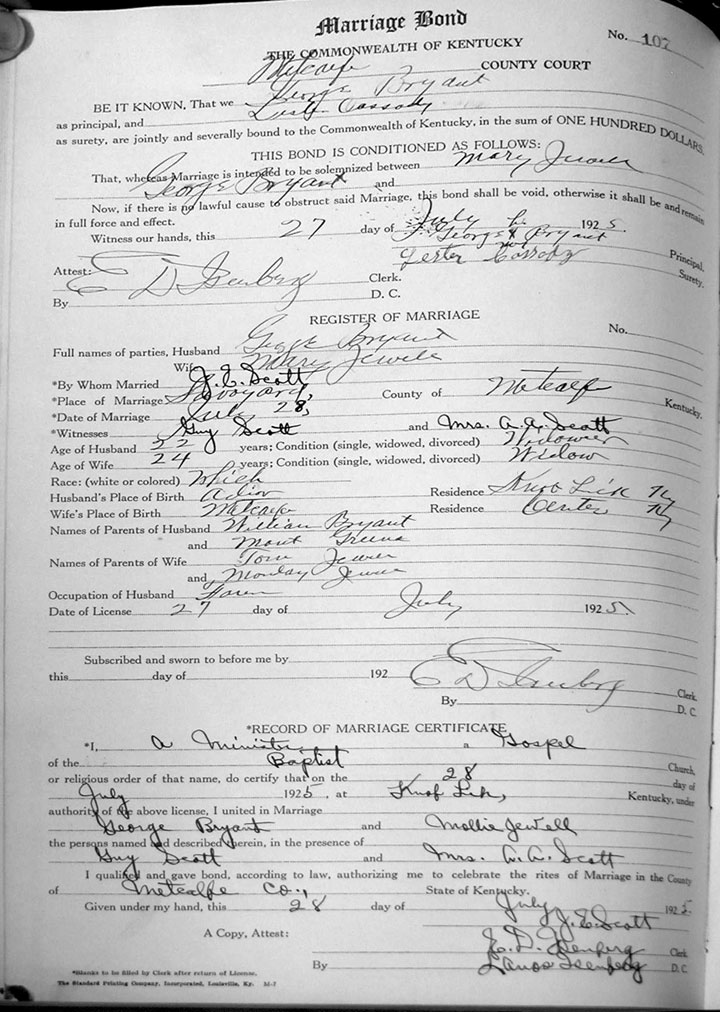 Marriage Bond
No. 107
THE COMMONWEALTH OF KENTUCKY
Metcalfe COUNTY COURT
BE IT KNOWN, That we George Bryant
as principal, and Cassady
as surety, are jointly and severally bound to the Commonwealth of Kentucky, in the sum of ONE HUNDRED DOLLARS.
THIS BOND IS CONDITIONED AS FOLLOWS:
That, whereas Marriage is intended to be solemnized between Mary Jewell
George Bryant and
Now, if there is no lawful cause to obstruct said Marriage, this bond shall be void, otherwise it shall be and remain
in full force and effect.
Witness our hands, this 27 day of July 1925.
George X Bryant Principal.
Lester Cassady Surety.
Attest: E D Isenberg Clerk.
By D. C.
REGISTER OF MARRIAGE
No.
Full names of parties, Husband George Bryant
Wife Mary Jewell
*By Whom Married J. E. Scott
*Place of Marriage Savoyard, County of Metcalfe Kentucky.
*Date of Marriage July 28,
*Witnesses Guy Scott and Mrs. A. A. Scott
Age of Husband 22 years; Condition (single, widowed, divorced) Widower
Age of Wife 24 years; Condition (single, widowed, divorced) Widow
Race: (white or colored)
Husband's Place of Birth Residence Knob Lick Ky
Wife's Place of Birth Metcalfe Residence Center Ky
Names of Parents of Husband William Bryant
and Mont
Names of Parents of Wife Tom Jewell
and Monday
Occupation of Husband
Date of License 27 day of July 1925.
Subscribed and sworn to before me by
this day of 192
E D Isenberg Clerk
By D. C.
*RECORD OF MARRIAGE CERTIFICATE
*I, a Minister a Gospel
of the Baptist Church,
or religious order of that name, do certify that on the 28 day of
July 1925, at Knob Lick, Kentucky, under
authority of the above license, I united in Marriage
George Bryant and Mollie Jewell
the persons named and described therein, in the presence of
Guy Scott and Mrs. A. A. Scott
I qualified and gave bond, according to law, authorizing me to celebrate the rites of Marriage in the County
of Metcalfe Co., State of Kentucky.
Given under my hand, this 28 day of July 1925.
J. E. Scott
A Copy, Attest: E. D. Isenberg Clerk
By Isenberg D.C.
*Blanks to be filled by Clerk after return of License.
The Standard Printing Company, Incorporated, Louisville, Ky.